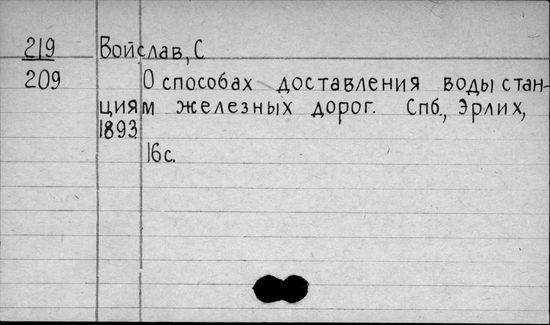 219 Войслав, С.
209 О способах доставления воды стан-
циям железных дорог. Спб., Эрлих,
1893.
16с.